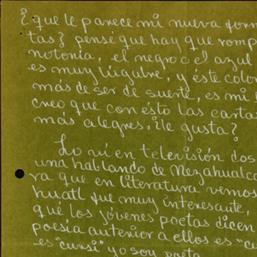 ¿que le parece mi nueva form
tas? pensé que hay que romp
notonía, el negro o el azul
es muy lúgubre, y éste colo
más de ser de suerte, es mi
creo que con ésto las carta
más alegres, ¿le gusta?
Lo ví en televisión dos
una hablando de Nezahualco
ya que en literatura vemos
huatl fue muy interesante,
qué los jóvenes poetas dicen
poesía anterior a ellos es "cu
es "cursi" yo soy poeta